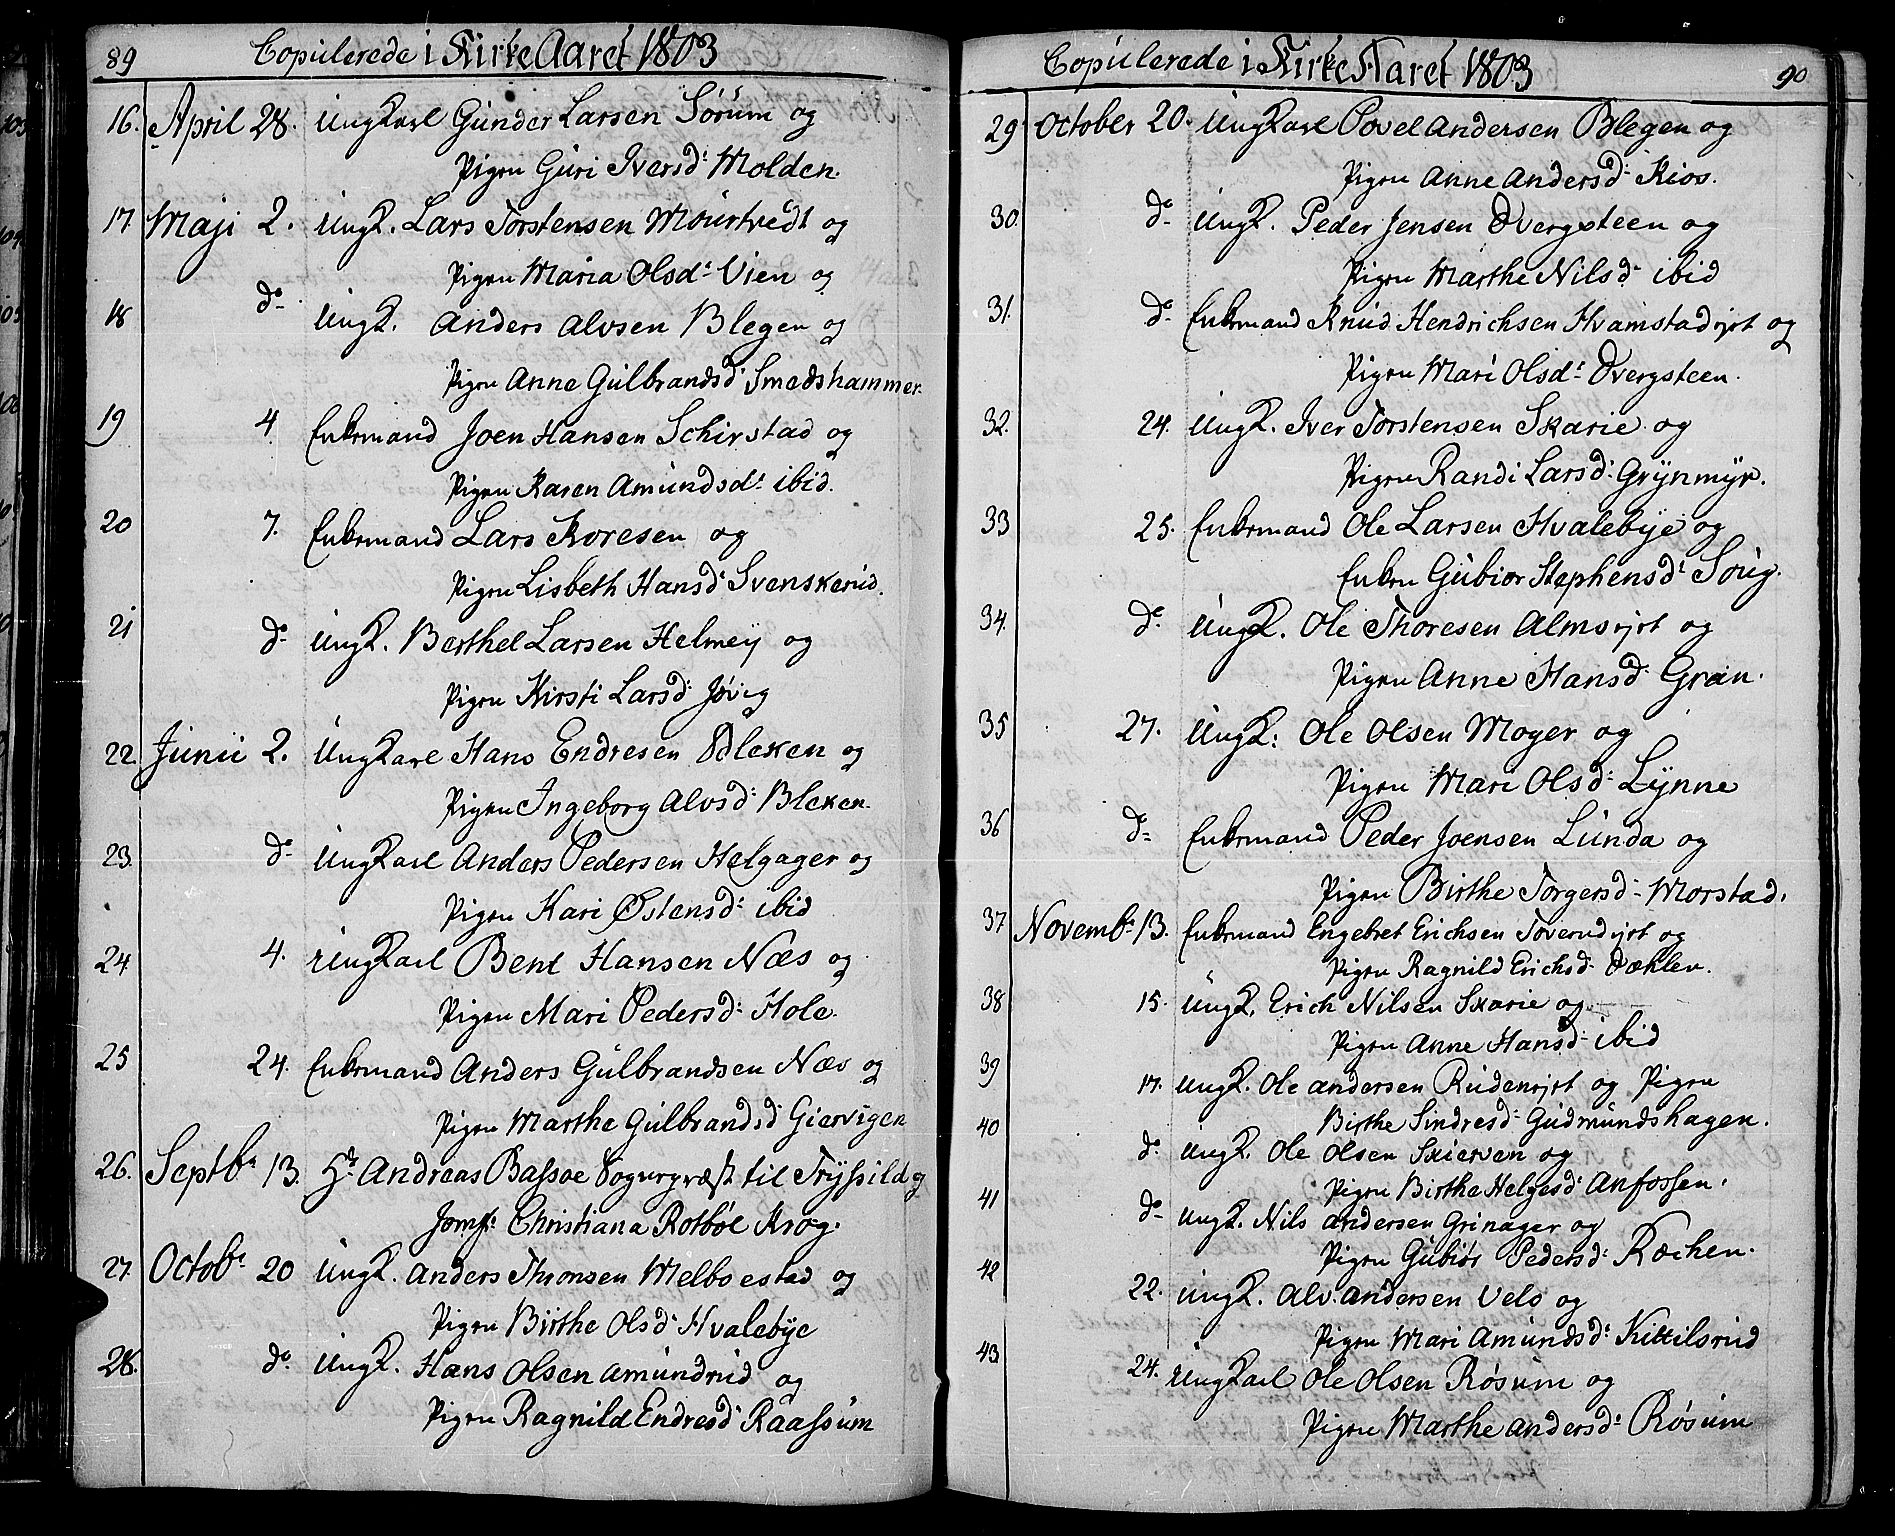 89 Copulerede i Kirke Aaret 1803
16. April 28. UngKarl Gunder Larsen Sørum og
Pigen Guri Iversd: Molden.
17. Maji 2. UngK. Lars Torstensen Mourtvedt og
Pigen Maria Olsd: Vien og
18 do UngK. Anders Alvsen Blegen og
Pigen Anne Gulbrandsd: Smedshammer
19 4. Enkemand Joen Hansen Schirstad og
Pigen Karen Amundsd: ibid.
20 7. Enkemand Lars Koresen og
Pigen Lisbeth Hansd: Svenskerud.
21 do UngK. Berthel Larsen Helmey og
Pigen Kirsti Larsd: Jøvig
22. Junii 2. UngKarl Hans Endresen Bleken og
Pigen Ingeborg Alvsd: Bleken.
23. do UngKarl Anders Pedersen Helgager og
Pigen Kari Østensd: ibid
24 4. UngKarl Bent Hansen Næs og
Pigen Mari Pedersd: Hole.
25 24. Enkemand Anders Gulbrandsen Næs og
Pigen Marthe Gulbrandsd: Giervigen
26. Septbr 13. Hr Andreas Bassøe Sognepræst til Tryssild og
Jomf: Christiana Rotbøl Krog.
27. Octobr 20 UngK. Anders Thronsen Melboestad og
Pigen Birthe Olsd: Hvalebye
28. do UngK. Hans Olsen Amundrud og
Pigen Ragnild Endresd: Raassum
Copulerede i Kirke Aaret 1803 90
29 October 20. UngKarl Povel Andersen Blegen og
Pigen Anne Andersd: Kios.
30. do UngK. Peder Jensen Dvergsteen og
Pigen Marthe Nilsd: ibid
31. do Enkemand Knud Hendrichsen Hvamstadejet og
Pigen Mari Olsd: Dvergsteen.
32. 24. UngK. Iver Torstensen Skarie og
Pigen Randi Larsd: Grynmyr.
33 25. Enkemand Ole Larsen Hvalebye og
Enken Gubior Stephensd: Soug.
34. do UngK. Ole Thoresen Almsejet og
Pigen Anne Hansd: Gran.
35 27. UngK: Ole Olsen Moger og
Pigen Mari Olsd: Lynne
36 do Enkemand Peder Joensen Lunda og
Pigen Birthe Torgersd: Morstad.
37 Novembr 13. Enkemand Engebret Erichsen Toverudejet og
Pigen Ragnild Erichsd: Dæhlen.
38 15. UngK. Erich Nilsen Skarie og
Pigen Anne Hansd: ibid
39 17. UngK. Ole Andersen Rudensjet og Pigen
Birthe Sindresd: Gudmundshagen.
40 do UngK. Ole Olsen Skierven og
Pigen Birthe Helgesd: Anfossen.
41 do UngK. Nils Andersen Grinager og
Pigen Gubiør Pedersd: Ræchen.
42 22. UngK. Alv Andersen Velo og
Pigen Mari Amundsd: Kittilsrud
43 24. UngKarl Ole Olsen Røsum og
Pigen Marthe Andersd: Røsum